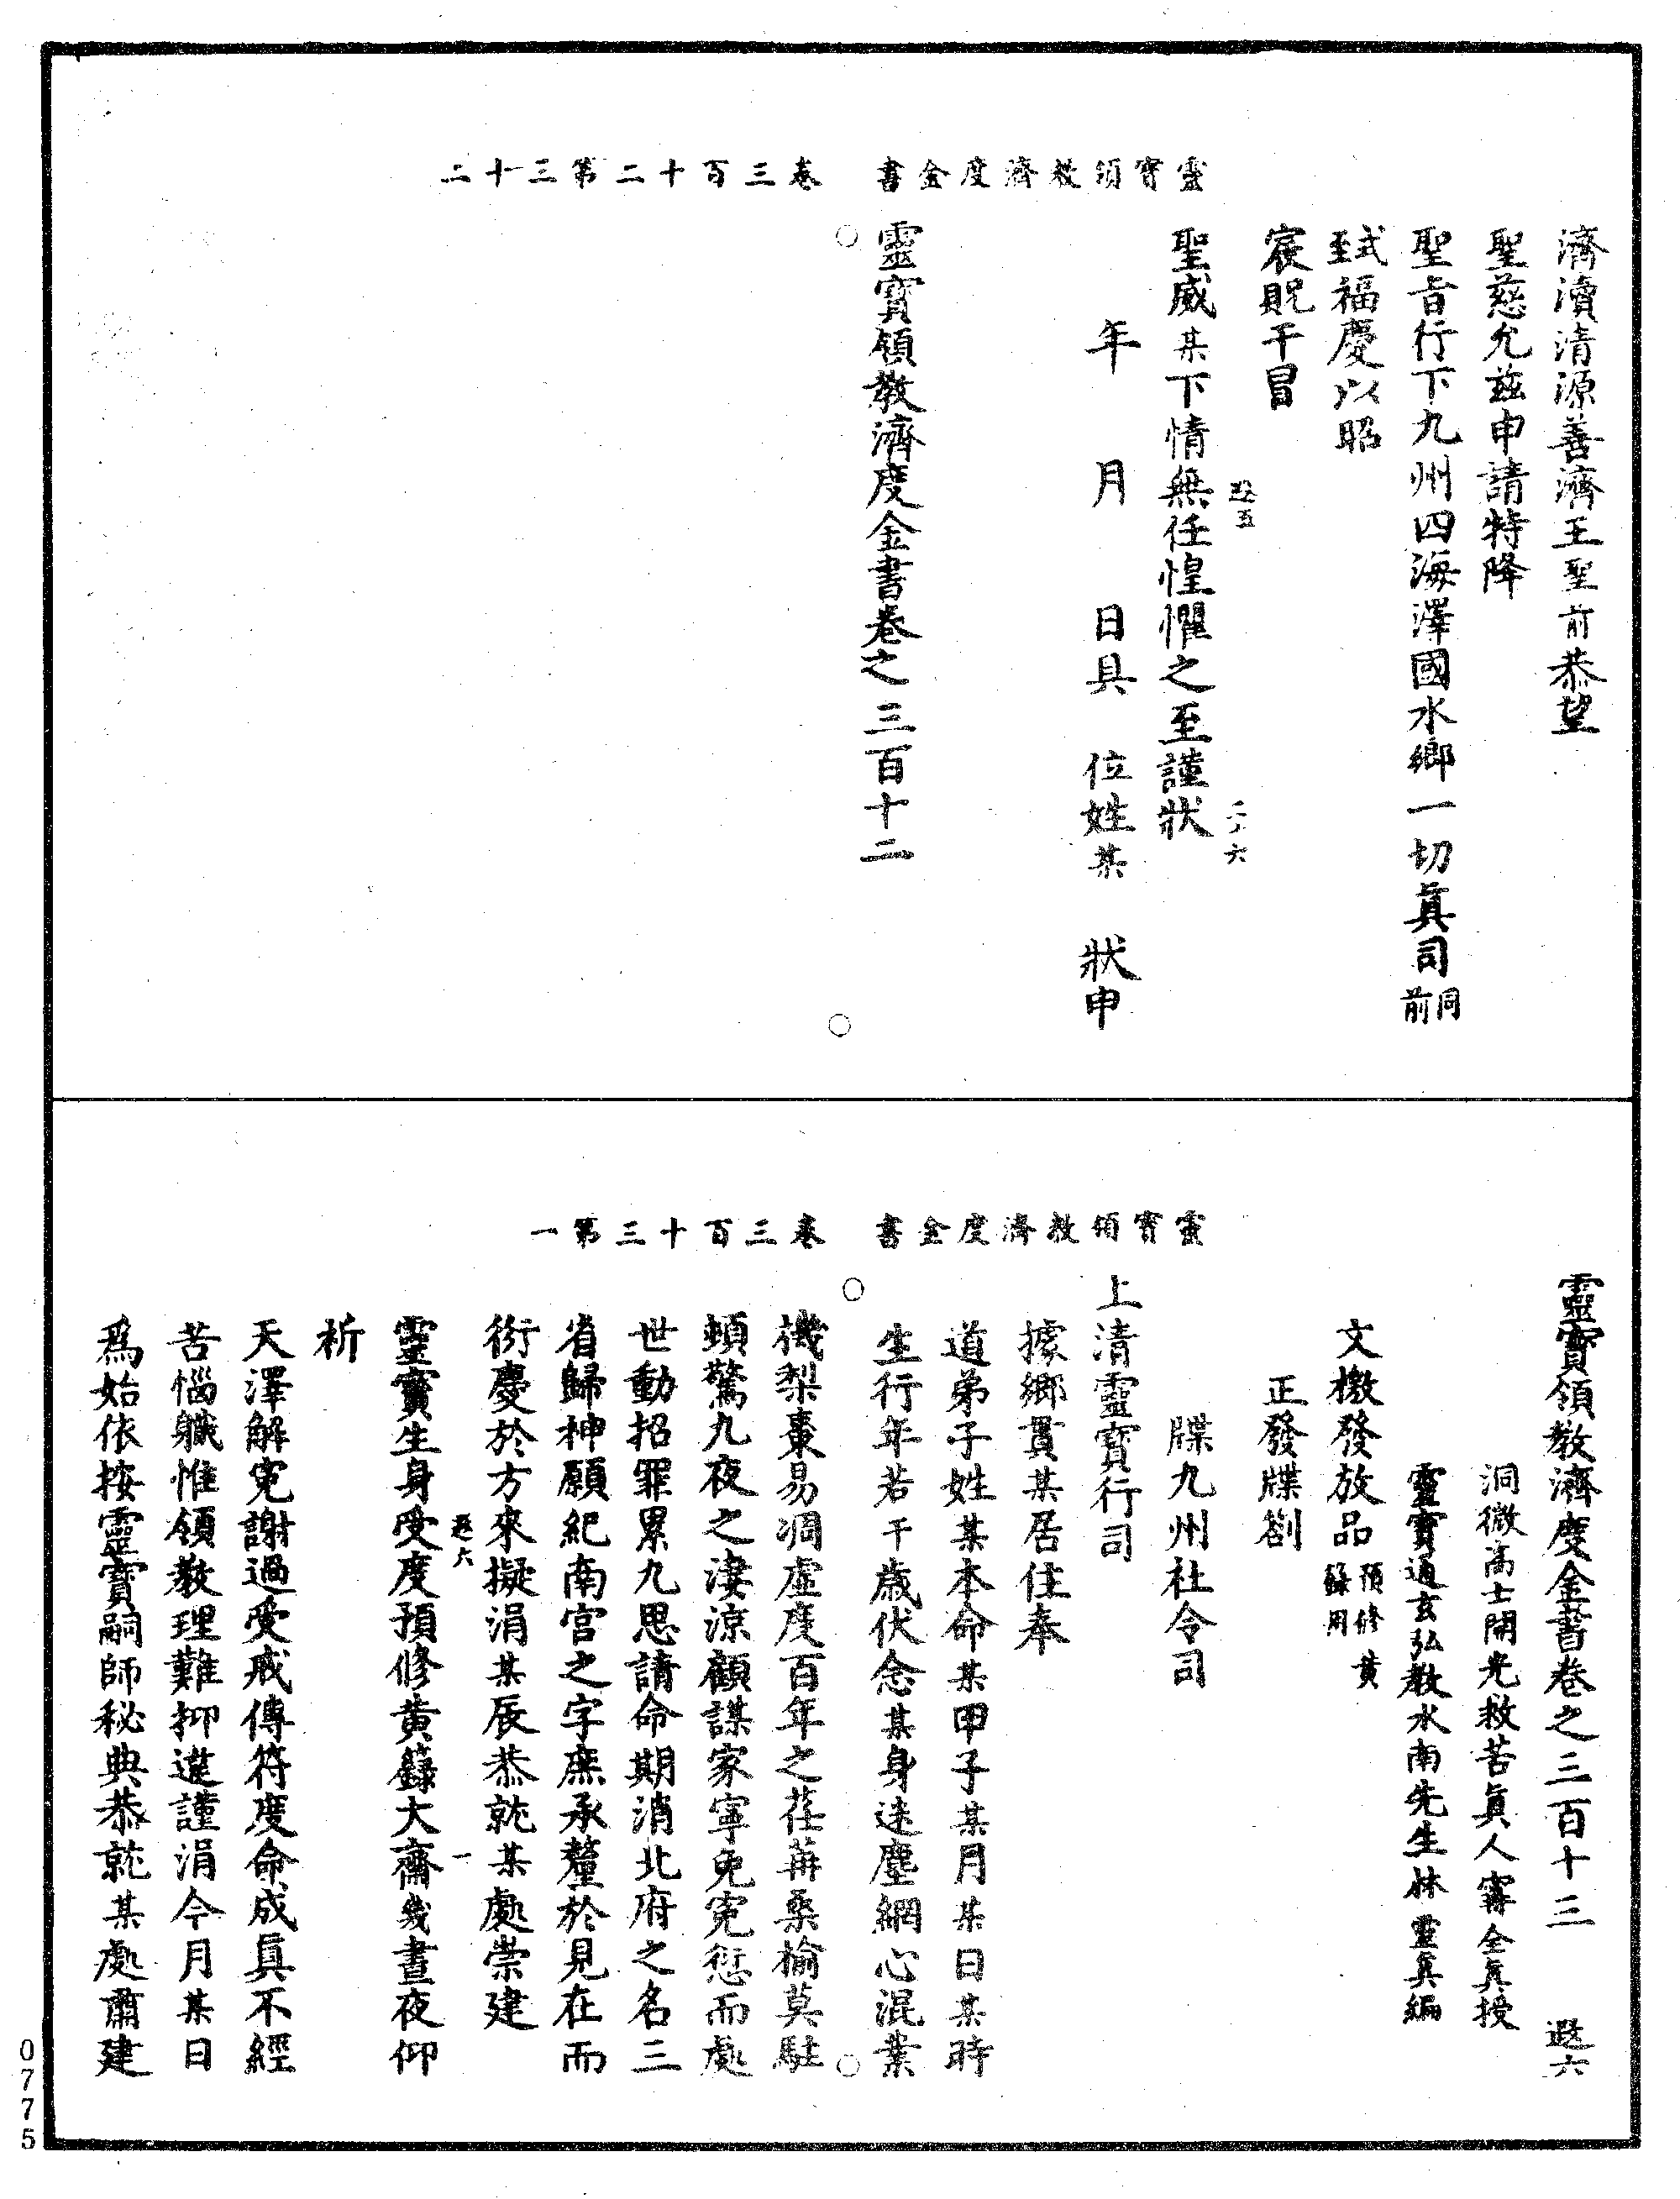 靈寶領教濟度金書　卷三百十二第三十二
濟瀆清源善濟王聖前恭望
聖慈允茲申請特降
聖旨行下九州四海澤國水鄉一切眞司同前
至弌福慶以昭
宸貺干冒
聖威某下情無任惶懼之至謹狀
年　月　日具　位姓某　狀申
靈寶領教濟度金書卷之三百十二
靈寶領教濟度金書　卷三百十三第一
靈寶領教濟度金書卷之三百十三　㤅六
洞微高士開光救苦眞人甯全眞授
靈寶通玄弘教水南先生林靈眞編
文檄發放品預修黃籙用
正發牒劄
牒九州社令司
上清靈寶行司
據鄉貫某居住奉
道弟子姓某本命某甲子某月某日某時
生行年若干歲伏念某身迷塵網心混業
機梨棗易凋虛度百年之荏苒桑榆莫駐
頓驚九夜之淒涼顧謀家寧免寃愆而處
世動招罪累九思請命期消北府之名三
省歸神願紀南宮之字庶承釐於見在而
衍慶於方來擬涓某辰恭就某處崇建
靈寶生身受度預修黃籙大齋幾晝夜仰
祈
天澤解寃謝過受戒傳符度命成眞不經
苦惱職惟領教理難抑違謹涓今月某日
爲始依按靈寶嗣師秘典恭就某處肅建
0775